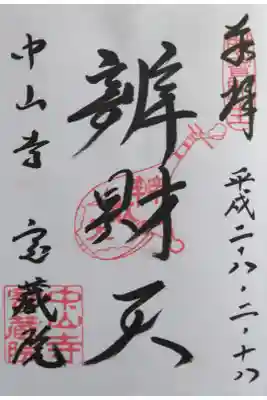 奉拝
平成二・八・二・十八
辨財天
中山寺 宝蔵院
中山寺
寳蔵院